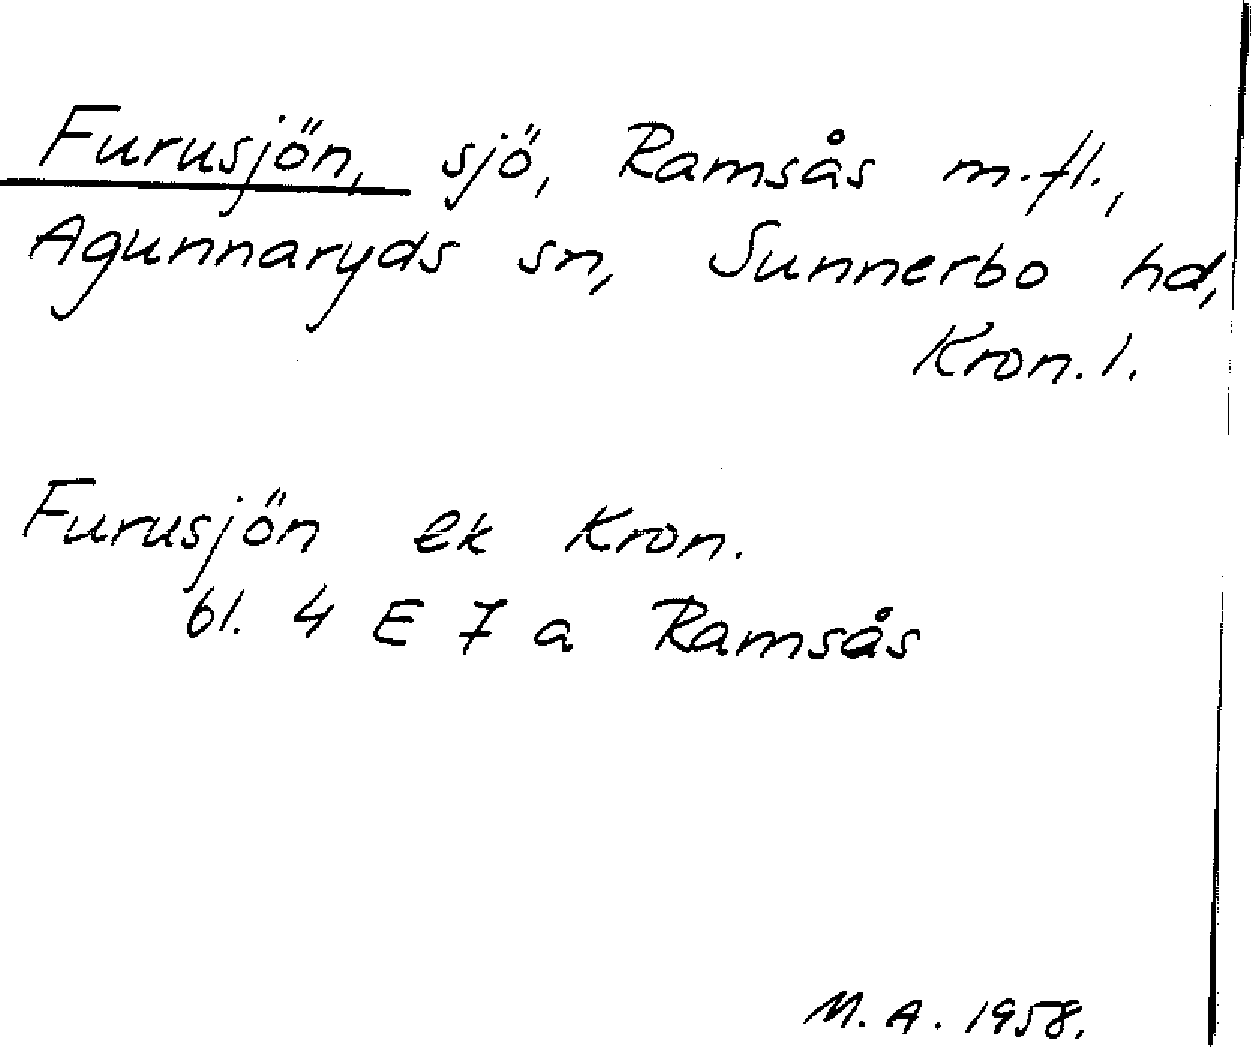 Furusjön, sjö, Ramsås m.fl.,
Agunnaryds sn, Sunnerbo hd,
Kron. l.
Furusjön ek Kron.
bl. 4 E 7 a Ramsås
M. A. 1958.